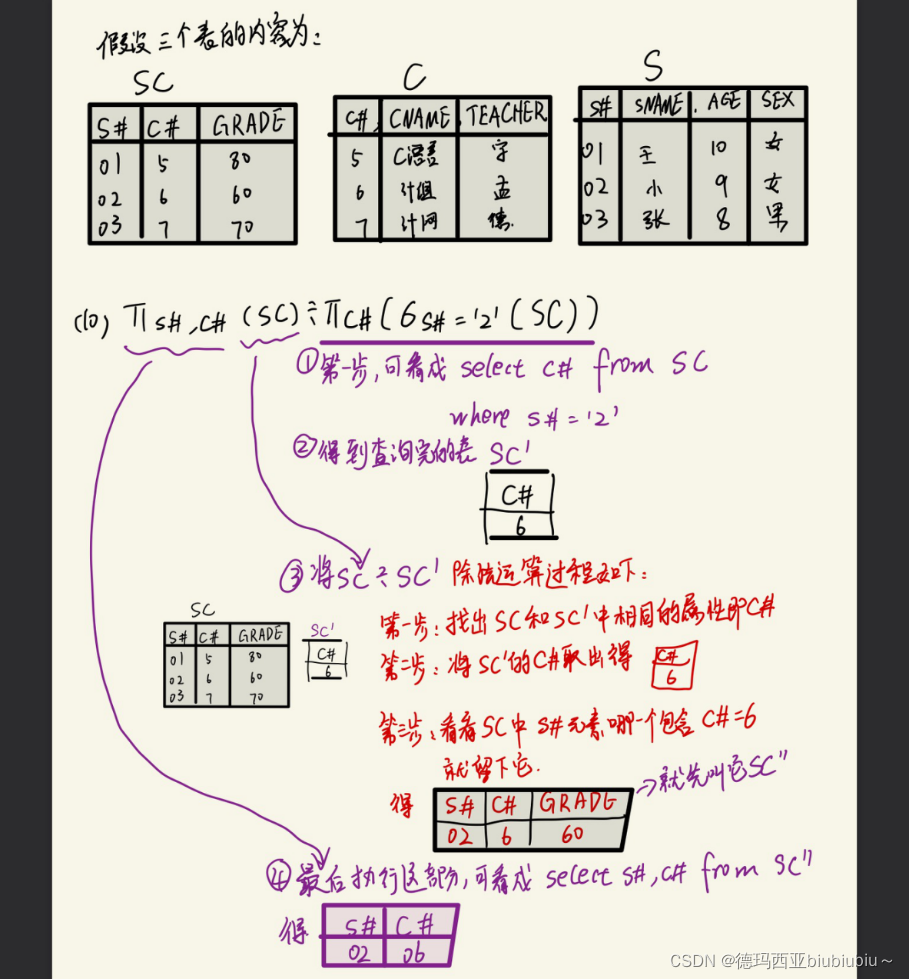 假设三个表的内容为:
SC C S
S# C# GRADE
01 5 80
02 6 60
03 7 70
C# CNAME TEACHER
5 C语言 字
6 计组 孟
7 计网 德
S# SNAME AGE SEX
01 王 10 女
02 小 9 女
03 张 8 男
(10) π S#,C# (SC) ÷ π C# (б S#='2' (SC))
①第一步,可看成 select C# from SC
where S#='2'
②得到查询完的表 SC'
C#
6
③将SC÷SC' 除法运算过程如下:
SC
S# C# GRADE
01 5 80
02 6 60
03 7 70
SC'
C#
6
第一步:找出SC和SC'中相同的属性即C#
第二步:将SC'的C#取出得
C#
6
第三步:看看SC中S#元素哪一个包含C#=6
就留下它.
得
S# C# GRADE
02 6 60
→就先叫它SC''
④最后执行这部分,可看成 select S#,C# from SC''
得
S# C#
02 06
CSDN @德玛西亚biubiubiu~